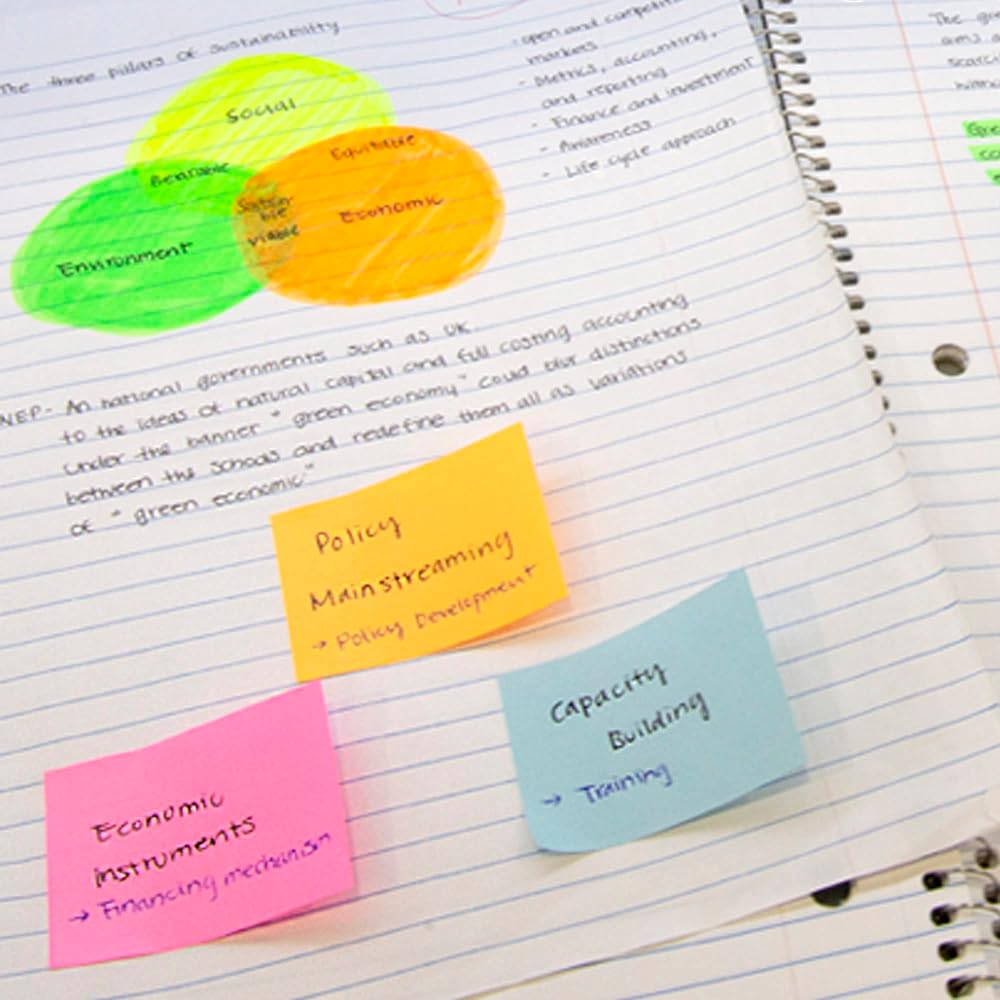 The three pillars of sustainability
Social
Equitable
Bearable
Economic
viable
Environment
- open and competitive
markets
- Metrics, accounting,
and reporting
- Finance and investment
- Awareness
- Life cycle approach
NEP - An national governments such as UK.
to the ideas of natural capital and full costing accounting
under the banner "green economy" could blur distinctions
between the schools and redefine them all as variations
of "green economic"
Policy
Mainstreaming
→ Policy Development
Capacity
Building
→ Training
Economic
Instruments
→ Financing mechanism
The